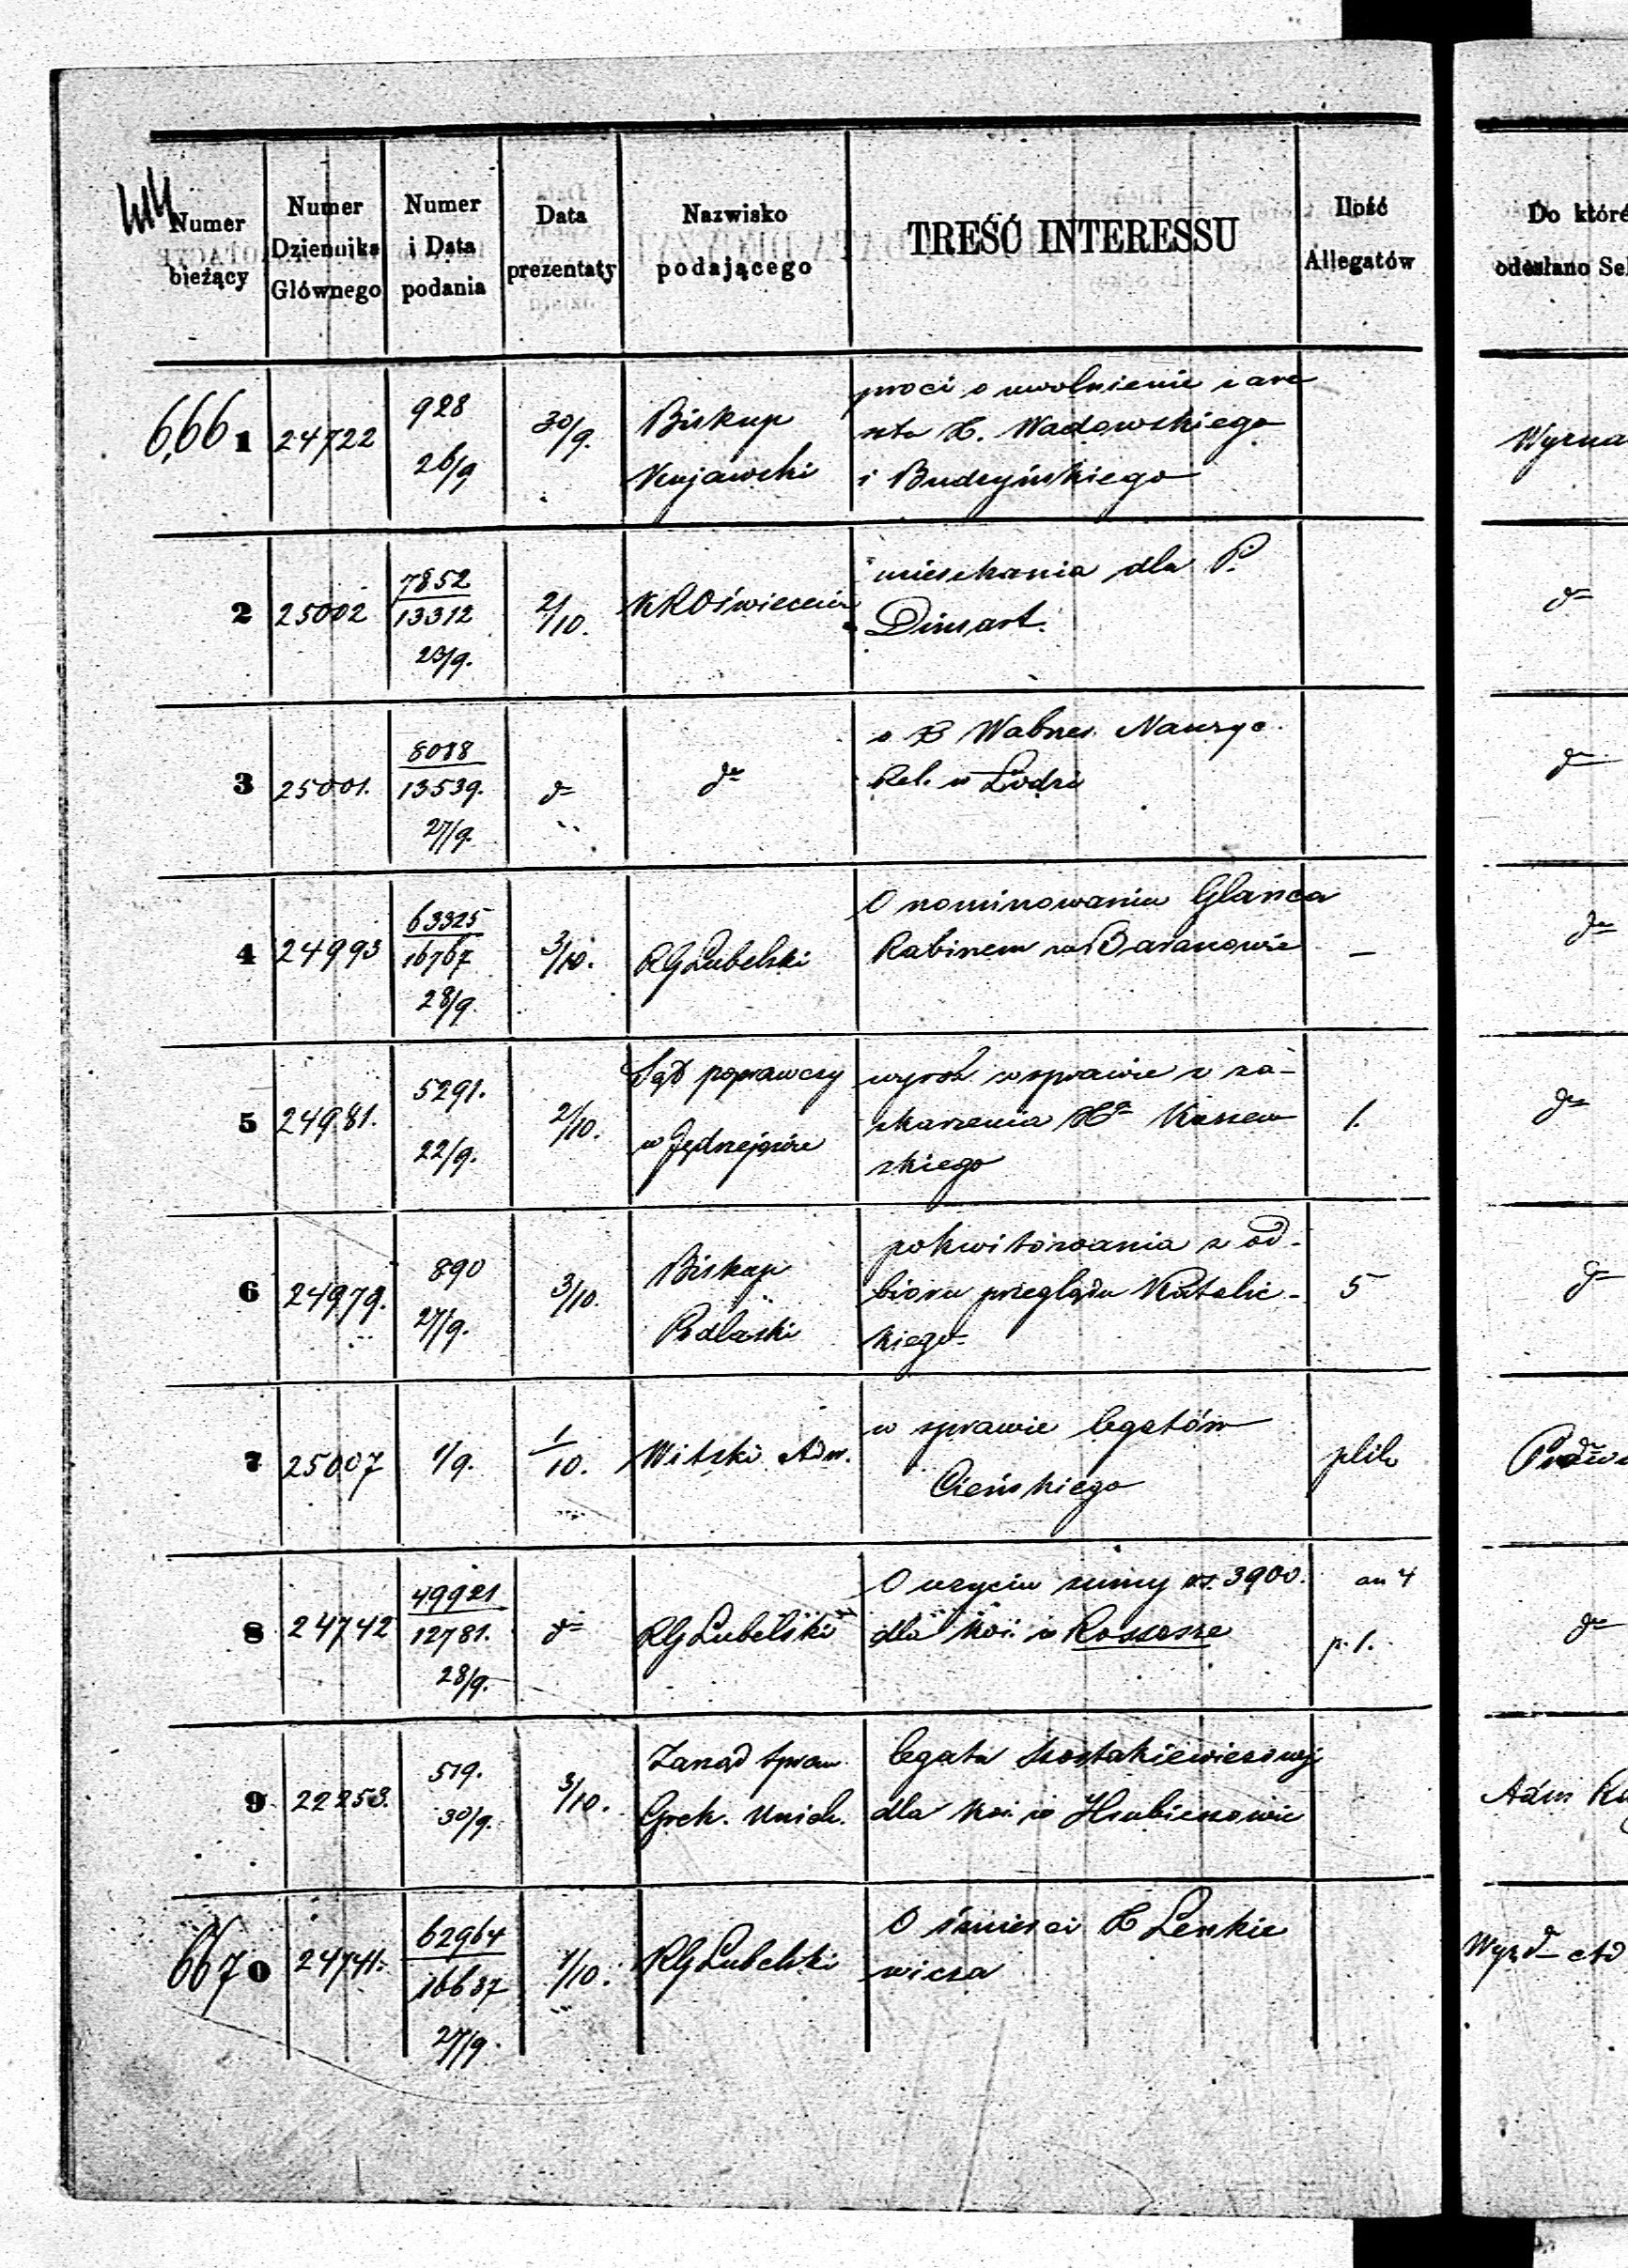 Numer bieżący
Numer Dziennika Głównego
Numer i Data podania
Data prezentaty
Nazwisko podającego
TREŚĆ INTERESSU
Ilość Allegatów
Do które
odesłano Sek
6,661 24722 928 26/9 30/9. Biskup Kujawski
proci o uwolnienie z are
sztu X. Wadowskiego
i Budzyńskiego
Wyzna
2 25002 7852 13312 23/9. 2/10. KROświecenia
mieszkania dla P.
Dinsart.
d⁰
3 25001. 8088 13539. 27/9. d⁰ d⁰
o X Wabner Nauczyc.
Rel. w Łodzi
d⁰
4 24993 63325 16767 28/9. 3/10. RGLubelski
O nominowaniu Glanca
Rabinem w Baranowie
—
d⁰
5 24981. 5291. 22/9. 2/10. Sąd poprawczy
w Jędrzejowie
wyrok w sprawie z za-
skarzenia Xa Kossew
skiego
1.
d⁰
6 24979. 890 27/9. 3/10. Biskup
Podlaski
pokwitowania z od-
bioru przeglądu Katolic-
kiego
5
d⁰
7 25007 1/9. 1/10. Witski Adw.
w sprawie legatów
Cieńskiego
plik
8 24742 49921 12781. 28/9. d⁰ RGLubelski
O użyciu sumy rs. 3900.
dla Koś. w Rossosze
an 4
p. 1.
d⁰
9 22253. 519. 30/9. 3/10. Zarząd Spraw.
Grek. Unick.
legatu Szostakiewiczowej
dla Koś. w Hrubieszowie
Adm
6670 24741. 62964 16637 27/9. 1/10. RGLubelski
O śmierci X Lenkie
wicza